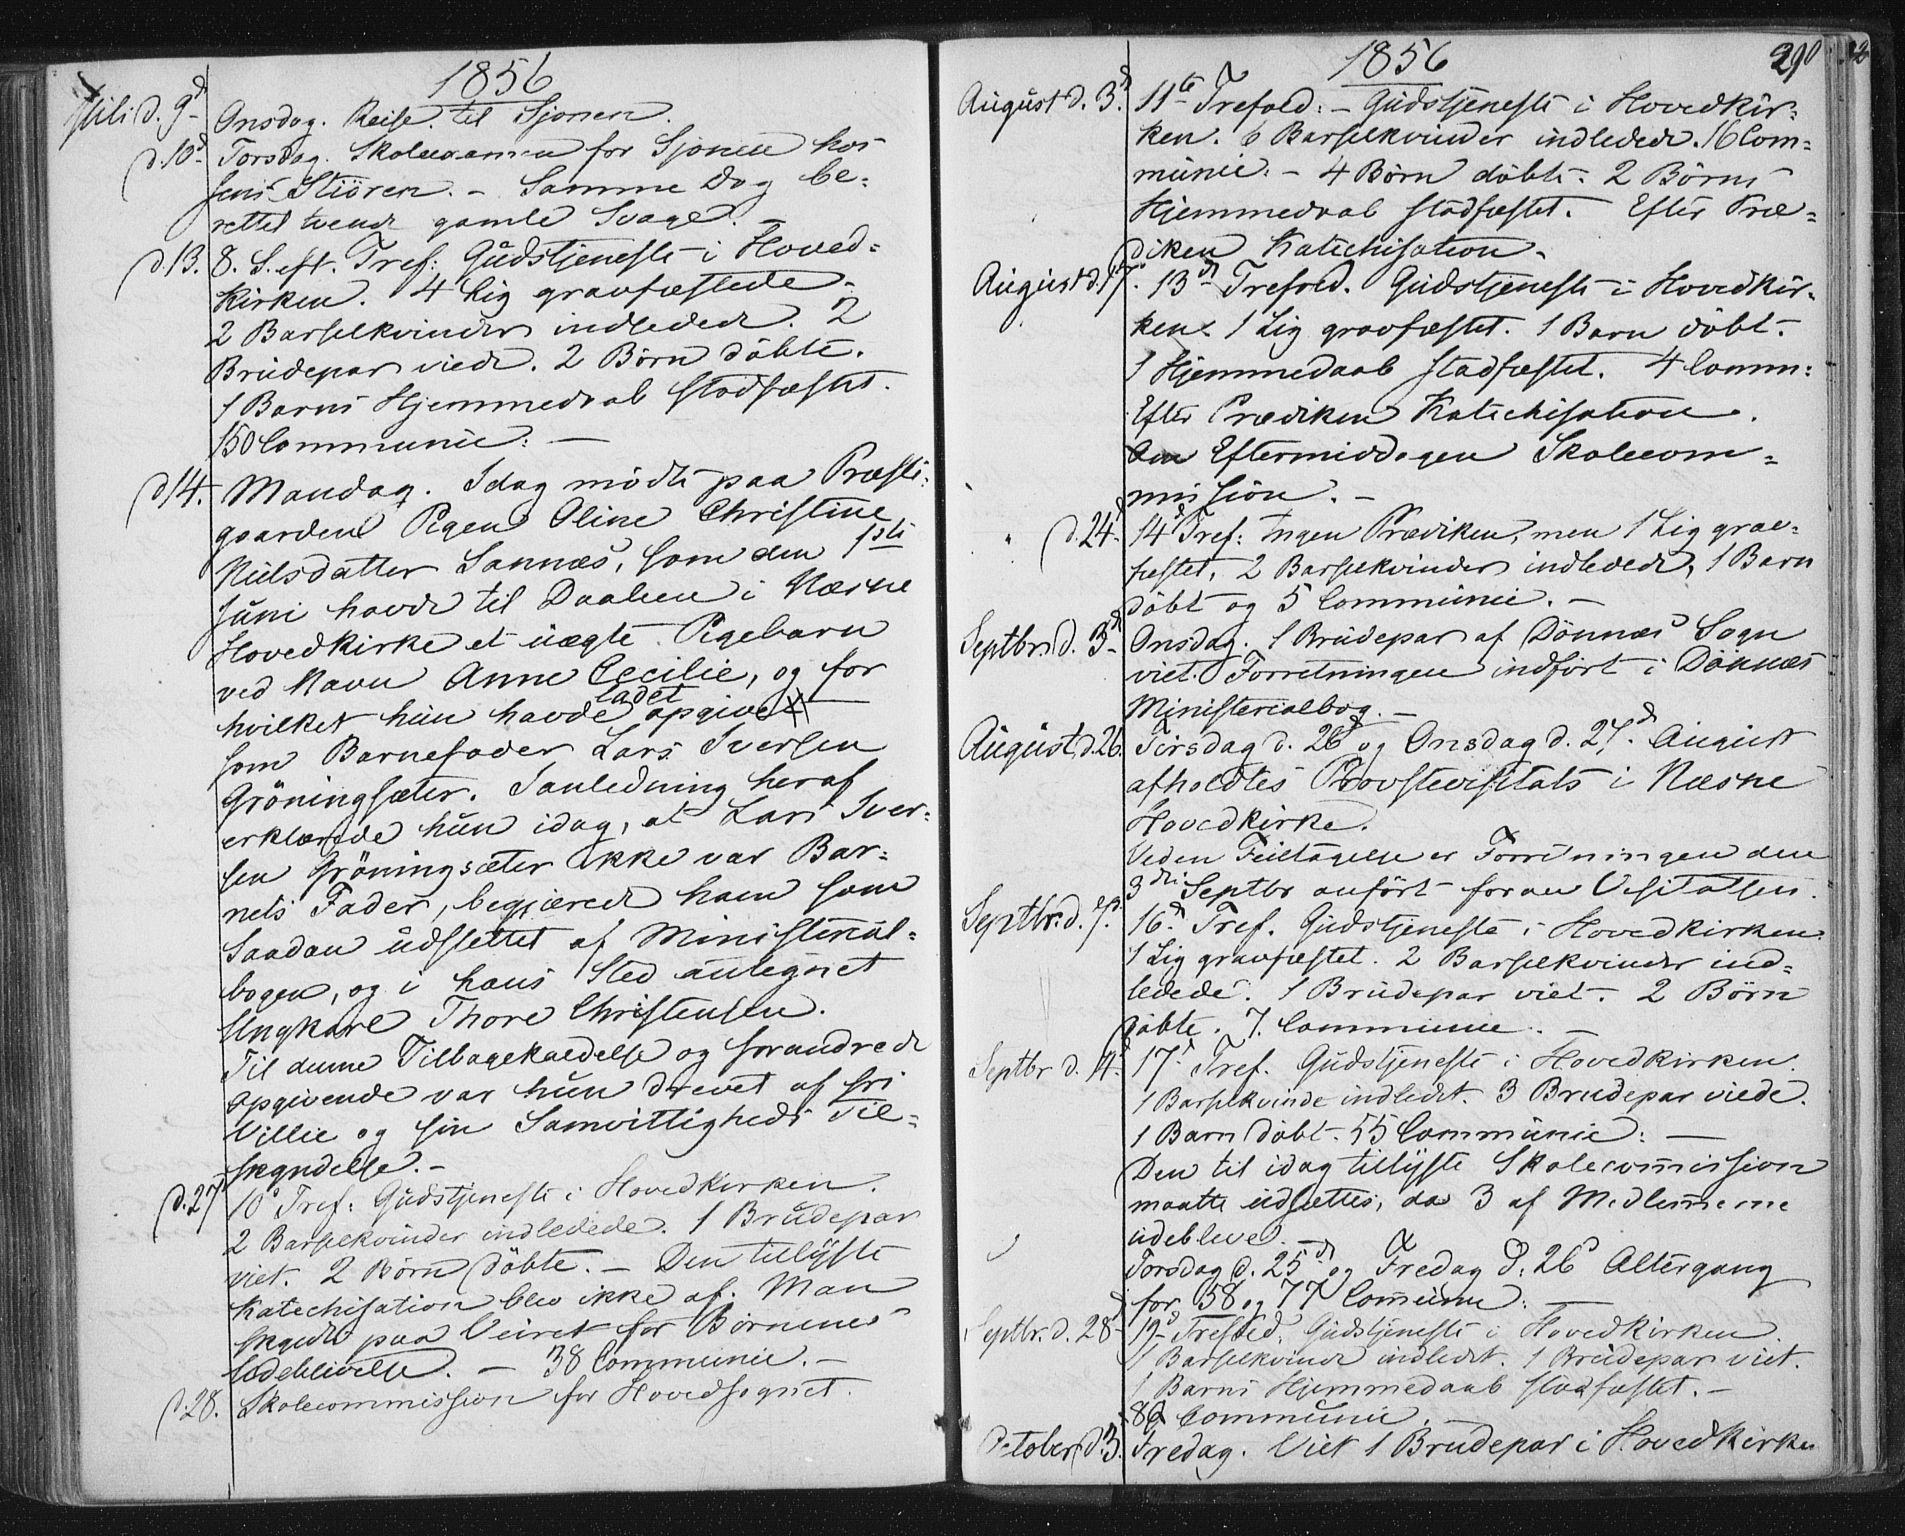 1856
Juli d. 9d Onsdag. Reise til Sjonen.
d. 10d Torsdag. Skoleexamen for Sjonen hos
Jens Stiören. – Samme Dag be-
rettet tvende gamle Svage. –
d. 13. 8. S. eft. Tref: Gudstjeneste i Hoved-
kirken. 4 Lig gravfæstede.
2 Barselkvinder indledede. 2
Brudepar viede. 2 Børn döbte.
1 Barns Hjemmedaab stadfæstet.
150 Communic: –
d 14. Mandag. Idag mödte paa Præste-
gaarden Pigen Oline Christine
Nielsdatter Sannæs, som den 1ste
Juni havde til Daaben i Næsne
Hovedkirke et uægte Pigebarn
ved Navn Anne Cecilie, og for
hvilket hun havde ladet opgive
som Barnefader Lars Iversen
Gröningsæter. I anledning heraf
erklærede hun idag, at Lars Iver-
sen Gröningsæter ikke var Bar-
nets Fader, begjærede ham som
Saadan udslettet af Ministerial-
bogen, og i hans Sted antegnet
Ungkarl Thore Christensen.
Til denne Tilbagekaldelse og forandrede
Opgivende var hun drevet af fri
Villie og sin Samvittigheds Til-
skyndelse. –
d. 27 10d Tref: Gudstjeneste i Hovedkirken.
2 Barselkvinder indledede. 1 Brudepar
viet. 2 Børn döbte. – Den tillyste
Katechisation blev ikke af. Man
skyldte paa Veiret for Børnenes
Udeblivelse. – 38 Communic. –
d. 28. Skolecommission for Hovedsognet.
1856
290
August d. 3d. 11te Trefold: – Gudstjeneste i Hovedkir-
ken. 6 Barselkvinder indledede. 16 Com-
munic: – 4 Børn döbte. 2 Børns
Hjemmedaab stadfæstet. Efter Præ-
diken Katechisation.
August d. 17d. 13d Trefold. Gudstjeneste i Hovedkir-
ken. 1 Lig gravfæstet. 1 Barn döbt.
1 Hjemmedaab stadfæstet. 4 Comm:
Efter Prædiken Katechisation.
Om Eftermiddagen Skolecom-
mission. –
d. 24d. 14d Tref: Ingen Prædiken, men 1 Lig grav-
fæstet, 2 Barselkvinder indledede, 1 Barn
döbt og 5 Communic. –
Septbr. d. 3d Onsdag. 1 Brudepar af Dönnæs Sogn
viet. Forretningen indført i Dönnæs
Ministerialbog. –
August d. 26. Tirsdag d. 26d og Onsdag d. 27d August
afholdtes Provstevisitats i Næsne
Hovedkirke.
Ved en Feiltagelse er Forretningen den
3die Septbr anført foran Visitatsen.
Septbr. d. 7d. 16d Tref. Gudstjeneste i Hovedkirken.
1 Lig gravfæstet. 2 Barselkvinder ind-
ledede. 1 Brudepar viet. 2 Börn
döbte. 7 Communic. –
Septbr d. 14. 17d Tref. Gudstjeneste i Hovedkirken.
1 Barselkvinde indledet. 3 Brudepar viede.
1 Barn döbt. 55 Communic: –
Den til idag tillyste Skolecommission
maatte udsættes, da 3 af Medlemmerne
udebleve. –
Torsdag d. 25d og Fredag d. 26d Altergang
for 58 og 77 Commun: –
Septbr. d. 28d 19d Trefold. Gudstjeneste i Hovedkirken.
1 Barselkvinde indledet. 1 Brudepar viet.
1 Barns Hjemmedaab stadfæstet. –
Communic. –
October d. 3. Fredag. Viet 1 Brudepar i Hovedkirken